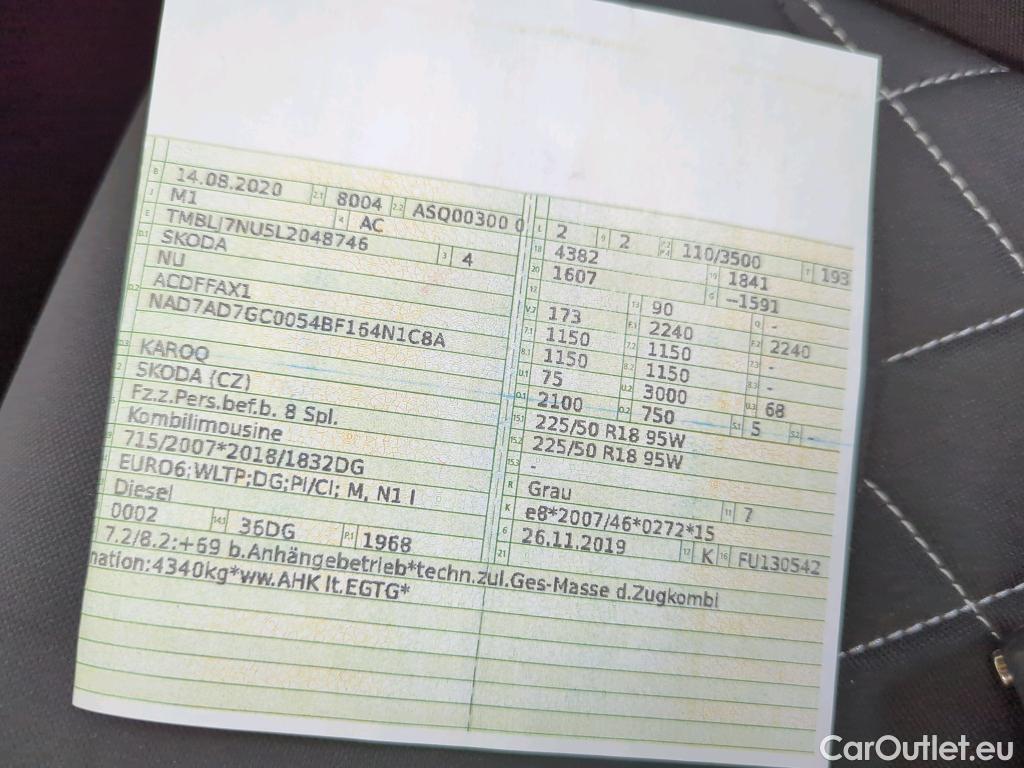 B 14.08.2020 2.1 8004 2.2 ASQ00300 0
J M1 4 AC
E TMBLJ7NU5L2048746 3 4
D.1 SKODA
NU
D.2 ACDFFAX1
NAD7AD7GC0054BF164N1C8A
D.3 KAROQ
2 SKODA (CZ)
5 Fz.z.Pers.bef.b. 8 Spl.
Kombilimousine
715/2007*2018/1832DG
EURO6;WLTP;DG;PI/CI; M, N1 I
Diesel
0002 14.1 36DG P.1 1968
7.2/8.2:+69 b.Anhängebetrieb*techn.zul.Ges-Masse d.Zugkombi
nation:4340kg*ww.AHK lt.EGTG*
L 2 9 2 P.2 P.4 110/3500 T 193
18 4382 19 1841
20 1607 G -1591
12 13 90 Q -
V.7 173 F.1 2240 F.2 2240
7.1 1150 7.2 1150 7.3 -
8.1 1150 8.2 1150 8.3 -
U.1 75 U.2 3000 U.3 68
O.1 2100 O.2 750 S.1 5 S.2 -
15.1 225/50 R18 95W
15.2 225/50 R18 95W
15.3 -
R Grau 11 7
K e8*2007/46*0272*15
6 26.11.2019 17 K 16 FU130542
21
CarOutlet.eu